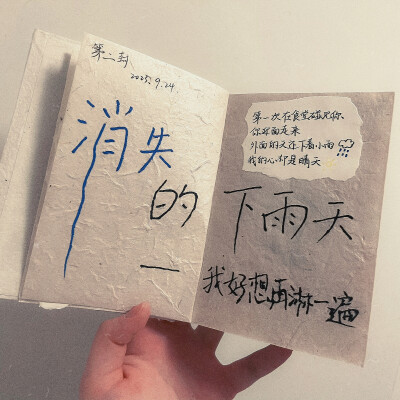 第二封
2025.9.24
消失
的
一
第一次在食堂碰见你
你迎面走来
外面的天还下着小雨
我的心却是晴天
下雨天
我好想再淋一遍